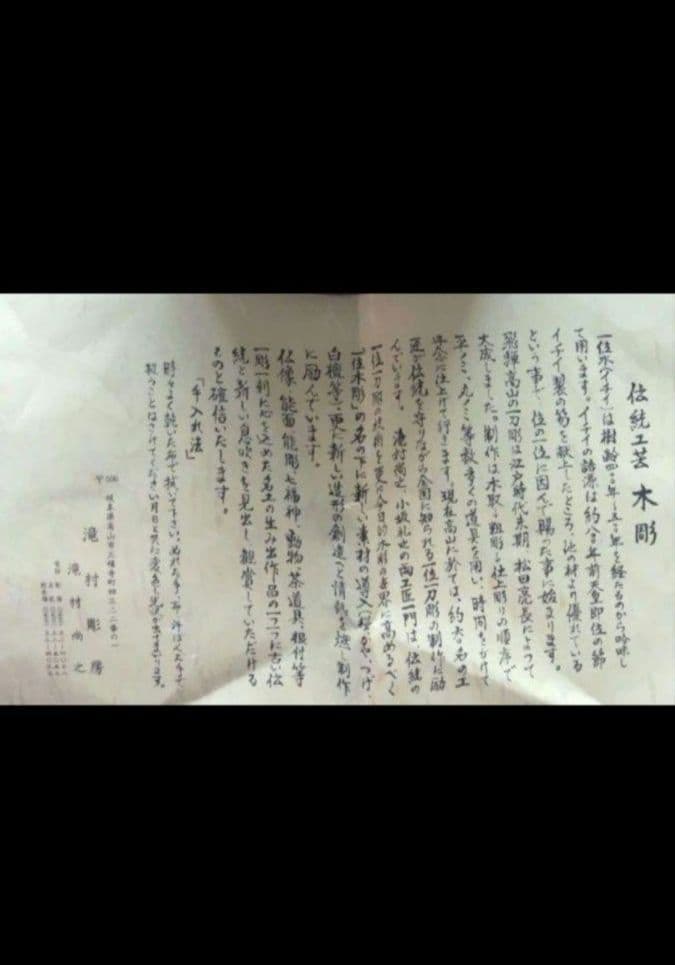 伝統工芸 木彫
一位木(イチイ)は樹齢四〇〇年～五〇〇年を経たものから吟味し
て用います。イチイの語源は約八〇〇年前天皇即位の節
イチイ製の笏を献上したところ、他の材より優れている
という事で、位の一位に因んで賜った事に始まります。
飛騨高山の一刀彫は江戸時代末期、松田亮長によって
大成しました。制作は木取・粗彫・仕上彫りの順序で
平ノミ、丸ノミ等数多くの道具を用い、時間をかけて
念に仕上げて行きます。現在高山に於ては、約六〇名の工
匠が伝統を守りながら全国に知られる一位一刀彫の制作に励
んでいます。 滝村尚之、小坂礼之の両工匠一門は、伝統の
一位一刀彫の技術を更に今日的木彫の世界に高めるべく
「一位木彫」の名の下に新しい素材の導入(桜、つげ
白檀等)、更に新しい造形の創造へと情熱を燃し制作
に励んでいます。
仏像、能面、能彫、七福神、動物、茶道具、根付等
一彫一刻に心を込めた名工の生み出す作品の一つ一つに古い伝
統と新しい息吹きを見出し、観賞していただける
ものと確信いたします。
「手入れ法」
時々よく乾いた布で拭いて下さい。ぬれた手、布
触うことはさけてください。月日と共に変色し光沢が出てまいります。
〒506 岐阜県高山市
滝村彫房
滝村尚之